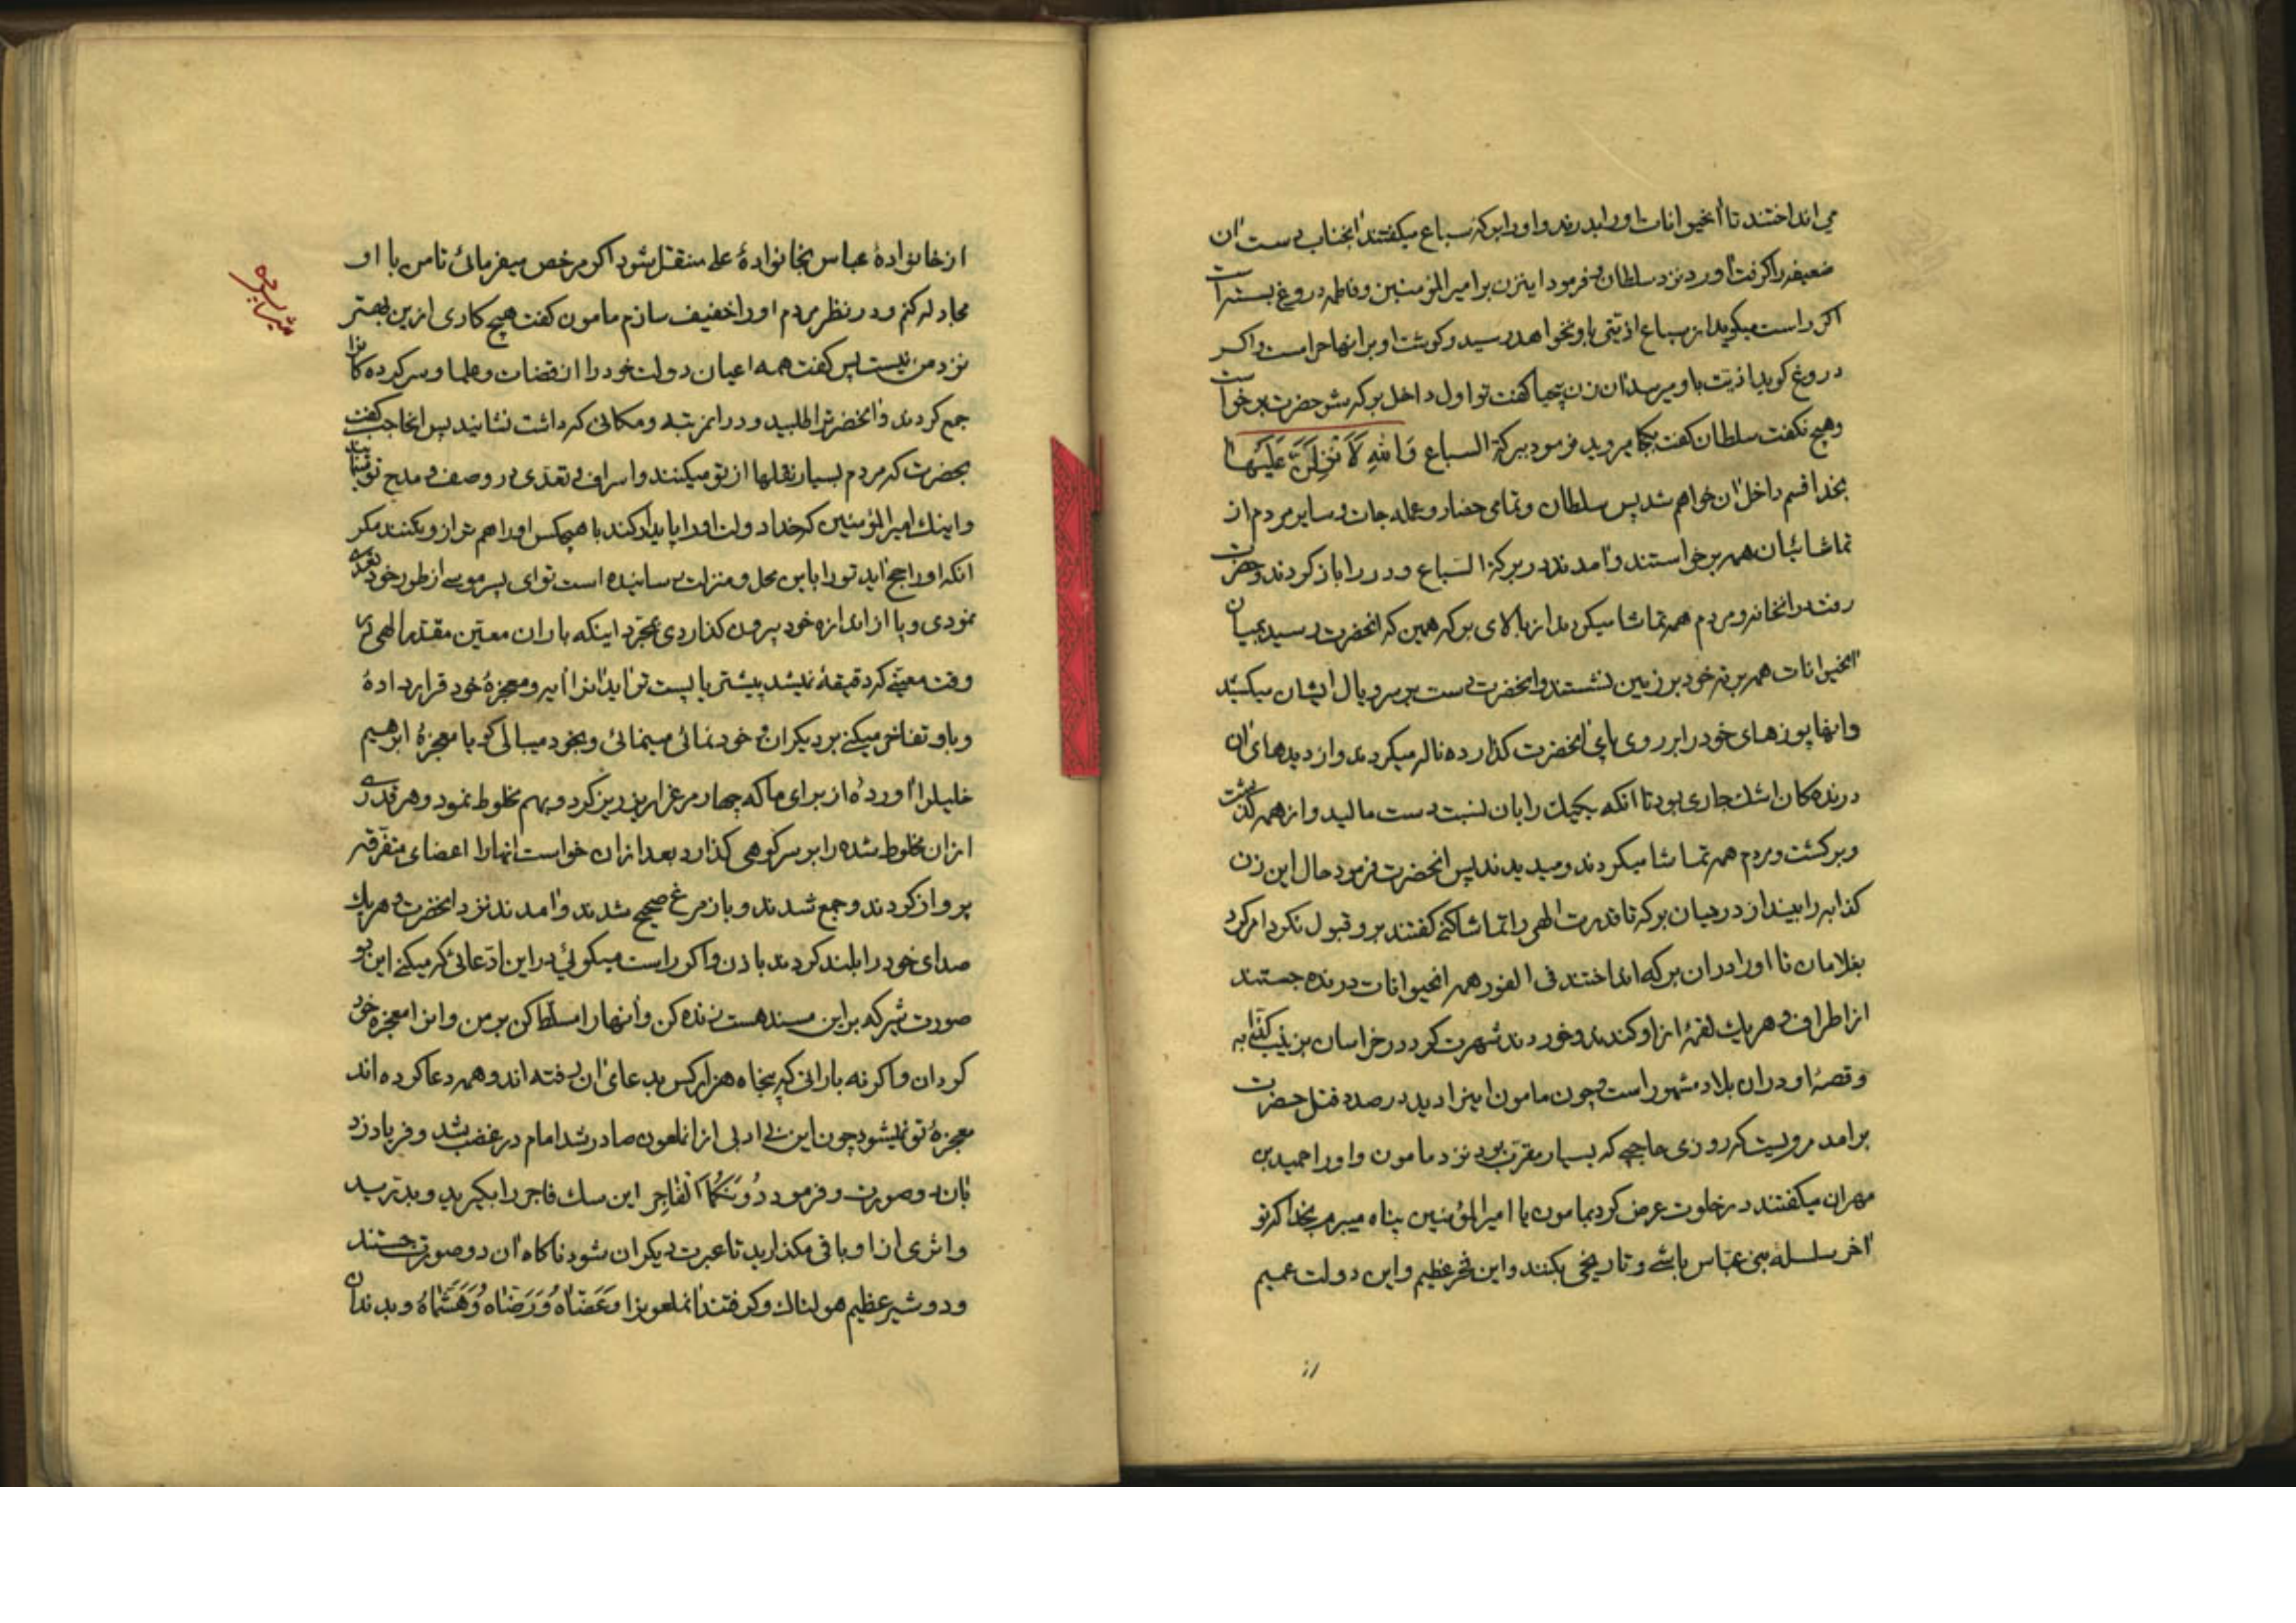 می انداختند تا آنحیوانات او را بدرند و او را برکه سباع میگفتند آنجناب دست آن
ضعیفه را گرفت آورد نزد سلطان و فرمود اینزن بر امیر المؤمنین و فاطمه دروغ بسته است
اگر راست میگوید از سباع اذیتی باو نخواهد رسید و گوشت او بر آنها حرامست و اگر
دروغ گوید اذیت باو میرسد آن زن بیحیا گفت تو اول داخل برکه شو حضرت برخواست
و هیچ نگفت سلطان گفت بکجا میروید فرمود ببرکة السباع وَاللهِ لَاَنْزِلَنَّ عَلَیْها
بخدا قسم داخل آن خواهم شد پس سلطان و تمامی حضار و عمله جات و سایر مردم از
تماشائیان همه برخواستند و آمدند در برکة السّباع و در را باز کردند و حضرت
رفت در آنخانه و مردم همه تماشا میکردند از بالای برکه همین که آنحضرت رسید بمیان
آنحیوانات همه بر دم خود بر زمین نشستند و آنحضرت دست بر سر و یال ایشان میکشید
و آنها پوزهای خود را بر روی پای آنحضرت گذارده ناله میکردند و از دیدهای آن
درندهکان اشک جاری بود تا آنکه یکیک را بآن نسبت دست مالید و از همه گذشت
و برگشت و مردم همه تماشا میکردند و میدیدند پس آنحضرت فرمود حال این زن
کذابه را بینداز در میان برکه تا قدرت الهی را تماشا کنی گفتند برو قبول نکرد امر کرد
بغلامان تا او را در ان برکه انداختند فی الفور همه آنحیوانات درنده جستند
از اطراف و هر یک لقمهٔ از او کندند و خوردند شهرت کرد در خراسان بزینب کذّابه
و قصهٔ او در ان بلاد مشهور است و چون مامون اینرا دید در صدد قتل حضرت
برآمد مرویست که روزی حاجبی که بسیار مقرّب بود نزد مامون و او را حمید بن
مهران میگفتند در خلوت عرض کرد بمامون یا امیر المؤمنین پناه میبرم بخدا که تو
آخر سلسله بنی عبّاس باشی و تاریخی بکنند و این فخر عظیم و این دولت عمیم
از
از خانوادهٔ عباس بخانوادهٔ علی منتقل شود اگر مرخص میفرمائی تا من با او
مجادله کنم و در نظر مردم او را خفیف سازم مامون گفت هیچ کاری ازین بهتر
نزد من نیست پس گفت همه اعیان دولت خود را از قضات و علما و سرکردهکانرا
جمع کردند و آنحضرترا طلبید و در آنمرتبه و مکانی که داشت نشانید پس آنحاجب گفت
بحضرت که مردم بسیار نقلها از تو میکنند و اسراف و تعدّی در وصف و مدح تو مینمایند
و اینک امیر المؤمنین که خدا دولت او را پاینده کند با هیچکس او را هم ترازو نکنند مگر
آنکه او را حج آید تو را باین محل و منزلت رسانیده است تو ای پسر موسی از طور خود تعدّی
نمودی و پا از اندازه خود بیرون گذاردی بمجرّد اینکه باران معیّن مقدّر الهی در
وقت معیّنی که دقیقهٔ نمیشد پیشتر یا پست تر آید آنرا آیه و معجزهٔ خود قرار داده
و باو تفاخر میکنی بر دیگران و خود نمائی مینمائی و بخود میبالی که یا معجزهٔ ابرهیم
خلیلرا آوردهٔ از برای ما که چهار مرغرا ریز ریز کرد و بهم مخلوط نمود و هر قدری
از ان مخلوط شده را بر سر کوهی گذارد بعد از ان خواست انهارا اعضای متفرّقه
پرواز کردند و جمع شدند و باز مرغ صحیح شدند و آمدند نزد انحضرت و هر یک
صدای خود را بلند کردند باذن و اگر راست میگوئی در این ادّعائی که میکنی این دو
صورت شیر که بر این مسند هست زنده کن و آنهارا مسلّط کن بر من و انرا معجزه خود
گردان و اگر نه بارانی که پنجاه هزار کس بدعای آن رفته اند و همه دعا کرده اند
معجزهٔ تو نمیشود چون این بی ادبی از انملعون صادر شد امام در غضب شد و فریاد زد
بآن دو صورت و فرمود دُونَکُمَا الفاجِر این سک فاجر را بگیرید و بدرید
و اثری از او باقی مگذارید تا عبرت دیگران شود ناگاه آن دو صورت جستند
و دو شیر عظیم هولناک و گرفتند آنملعونرا وَعَضّاهُ وَرَضّاه وَهَشَّماهُ و بدندان
شیر پرده